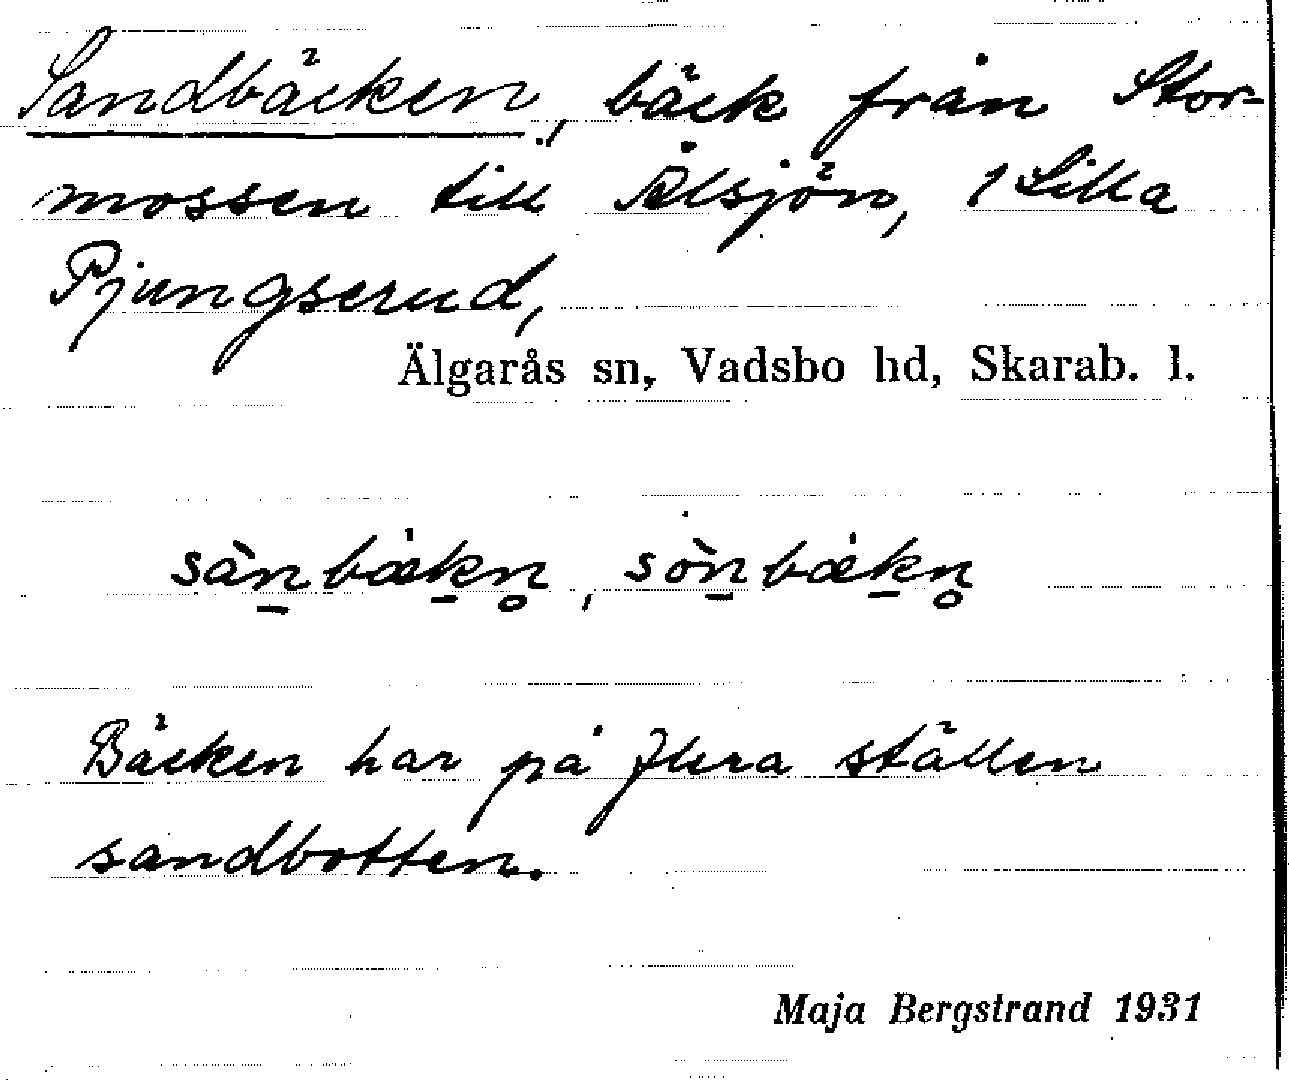 Sandbäcken, bäck från Stor-
mossen till Älsjön, 1 Lilla
Pjungserud,
Älgarås sn, Vadsbo hd, Skarab. l.
sàn̠bæk̠n̥, sòn̠bæk̠n̥
Bäcken har på flera ställen
sandbotten.
Maja Bergstrand 1931